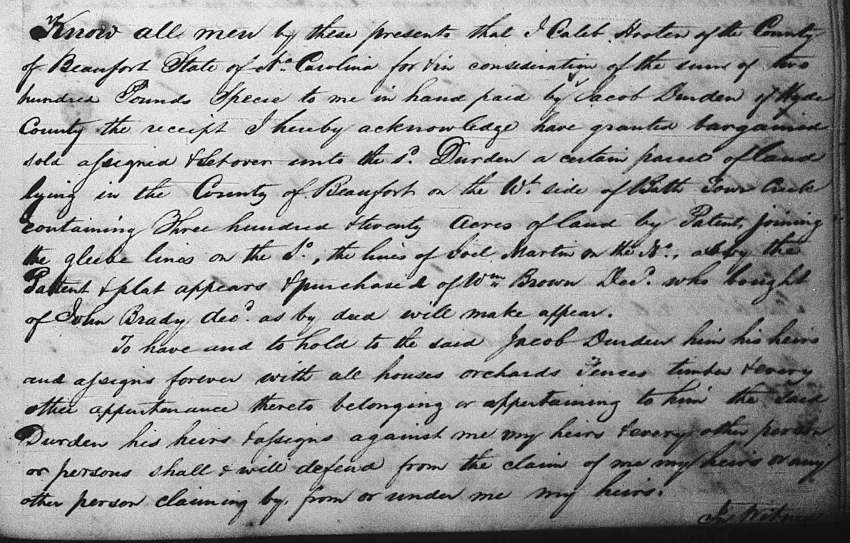 Know all men by these presents that I Caleb Hooten of the County
of Beaufort State of No. Carolina for & in consideration of the sum of two
hundred Pounds Specie to me in hand paid by Jacob Durden of Hyde
County the receipt I hereby acknowledge have granted bargained
sold assigned & Set over unto the sd. Durden a certain parcel of land
lying in the County of Beaufort on the Wt. side of Bath Town Creek
containing Three hundred & twenty Acres of land by Patent, joining
the gleebe lines on the So., the lines of Joel Martin on the No., as by the
Pattent & plat appears & purchased of Wm. Brown Decd. who bought
of John Brady decd. as by deed will make appear.
To have and to hold to the said Jacob Durden him his heirs
and assigns forever with all houses orchards Fences timber & every
other appurtenance thereto belonging or appertaining to him the Said
Durden his heirs & assigns against me my heirs & every other person
or persons shall & will defend from the claim of me my heirs or any
other person claiming by, from or under me my heirs.
In Witness